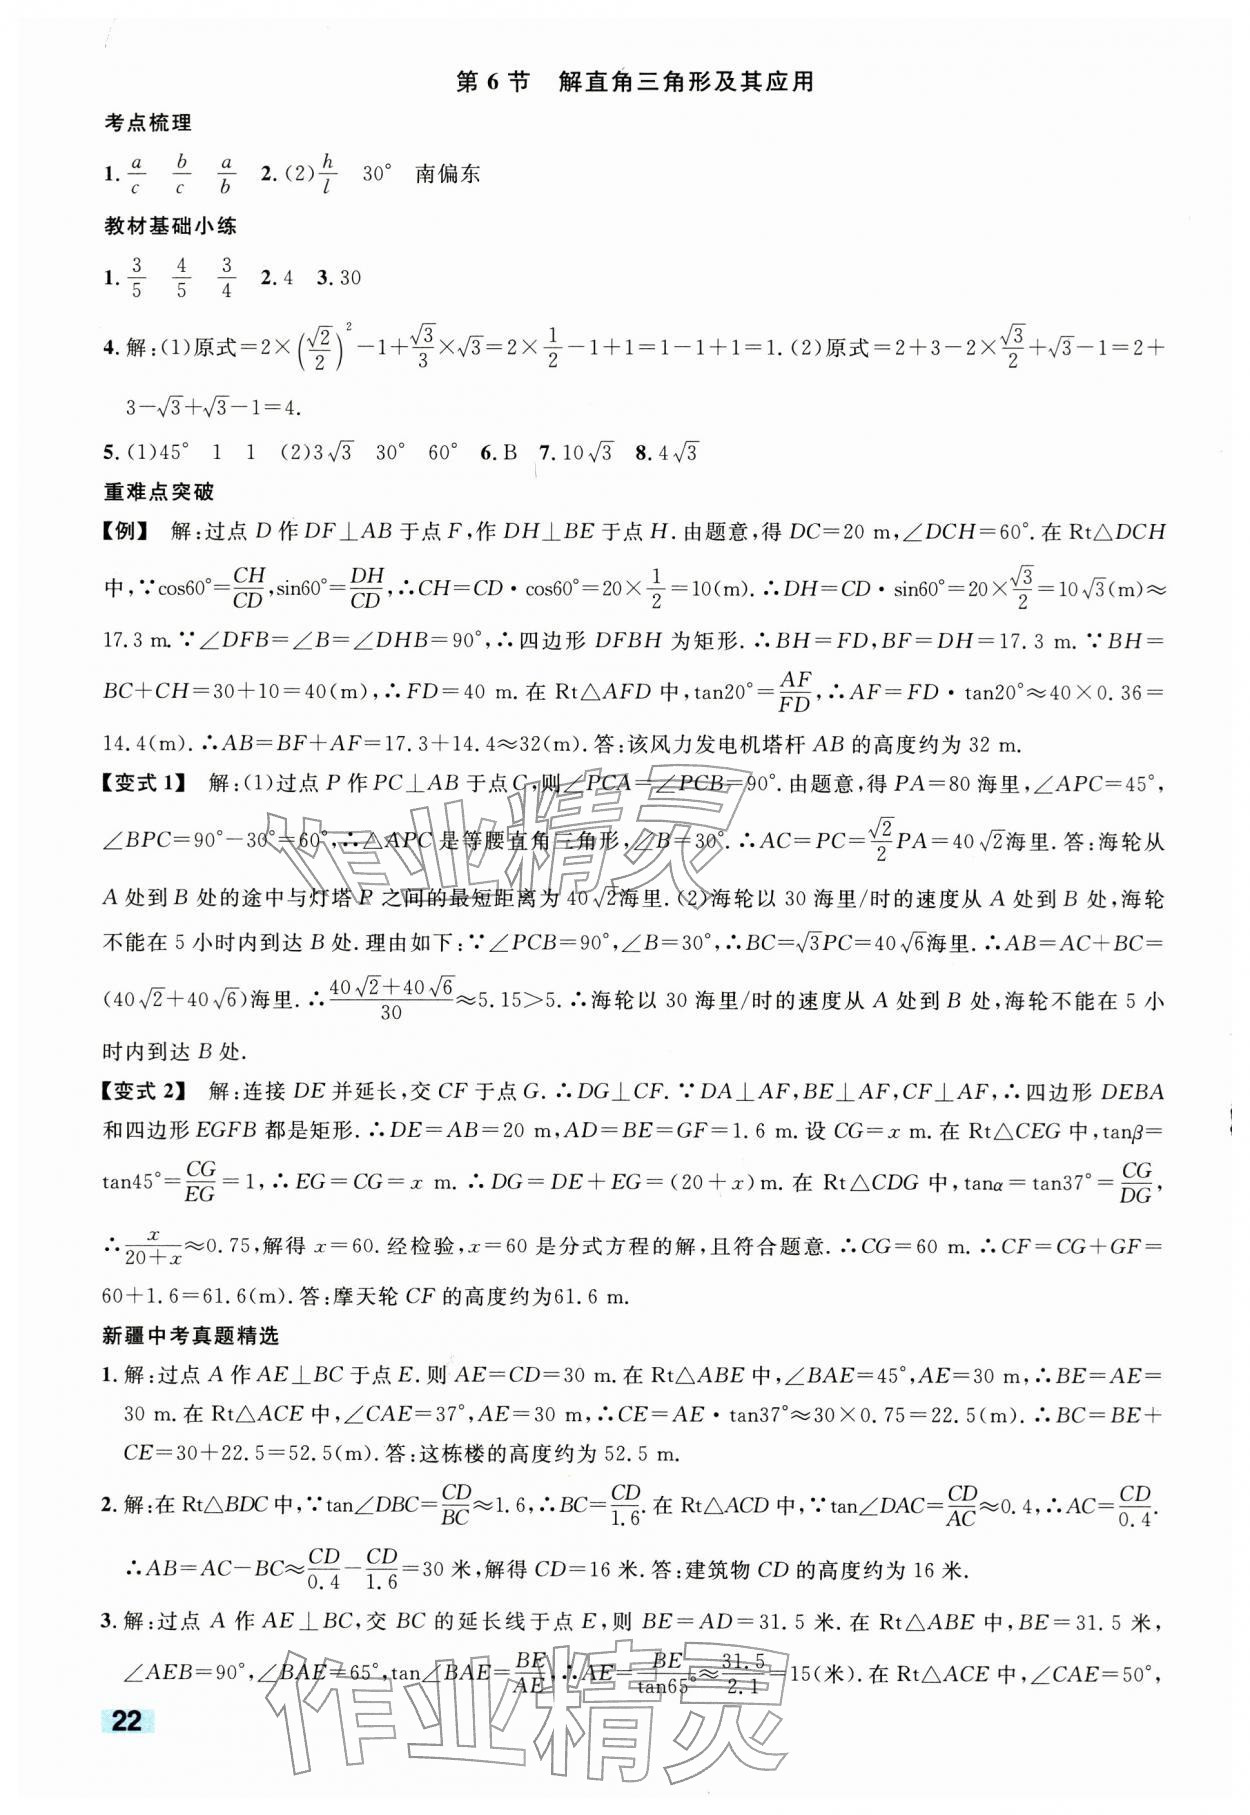 第 6 节　解直角三角形及其应用
考点梳理
1. a/c　b/c　a/b　2.(2) h/l　30°　南偏东
教材基础小练
1. 3/5　4/5　3/4　2. 4　3. 30
4. 解:(1)原式=2×(√2/2)²-1+√3/3×√3=2×1/2-1+1=1-1+1=1.(2)原式=2+3-2×√3/2+√3-1=2+
3-√3+√3-1=4.
5.(1)45°　1　1　(2)3√3　30°　60°　6. B　7. 10√3　8. 4√3
重难点突破
【例】　解:过点 D 作 DF⊥AB 于点 F,作 DH⊥BE 于点 H. 由题意,得 DC=20 m,∠DCH=60°. 在 Rt△DCH
中,∵cos60°=CH/CD,sin60°=DH/CD,∴CH=CD·cos60°=20×1/2=10(m).∴DH=CD·sin60°=20×√3/2=10√3(m)≈
17.3 m.∵∠DFB=∠B=∠DHB=90°,∴四边形 DFBH 为矩形.∴BH=FD,BF=DH=17.3 m.∵BH=
BC+CH=30+10=40(m),∴FD=40 m. 在 Rt△AFD 中,tan20°=AF/FD,∴AF=FD·tan20°≈40×0.36=
14.4(m).∴AB=BF+AF=17.3+14.4≈32(m). 答:该风力发电机塔杆 AB 的高度约为 32 m.
【变式 1】　解:(1)过点 P 作 PC⊥AB 于点 C,则∠PCA=∠PCB=90°. 由题意,得 PA=80 海里,∠APC=45°,
∠BPC=90°-30°=60°,∴△APC 是等腰直角三角形,∠B=30°.∴AC=PC=√2/2PA=40√2海里. 答:海轮从
A 处到 B 处的途中与灯塔 P 之间的最短距离为 40√2海里.(2)海轮以 30 海里/时的速度从 A 处到 B 处,海轮
不能在 5 小时内到达 B 处. 理由如下:∵∠PCB=90°,∠B=30°,∴BC=√3PC=40√6海里.∴AB=AC+BC=
(40√2+40√6)海里.∴(40√2+40√6)/30≈5.15>5.∴海轮以 30 海里/时的速度从 A 处到 B 处,海轮不能在 5 小
时内到达 B 处.
【变式 2】　解:连接 DE 并延长,交 CF 于点 G.∴DG⊥CF.∵DA⊥AF,BE⊥AF,CF⊥AF,∴四边形 DEBA
和四边形 EGFB 都是矩形.∴DE=AB=20 m,AD=BE=GF=1.6 m. 设 CG=x m. 在 Rt△CEG 中,tanβ=
tan45°=CG/EG=1,∴EG=CG=x m.∴DG=DE+EG=(20+x)m. 在 Rt△CDG 中,tanα=tan37°=CG/DG,
∴x/(20+x)≈0.75,解得 x=60. 经检验,x=60 是分式方程的解,且符合题意.∴CG=60 m.∴CF=CG+GF=
60+1.6=61.6(m). 答:摩天轮 CF 的高度约为61.6 m.
新疆中考真题精选
1. 解:过点 A 作 AE⊥BC 于点 E. 则 AE=CD=30 m. 在 Rt△ABE 中,∠BAE=45°,AE=30 m,∴BE=AE=
30 m. 在 Rt△ACE 中,∠CAE=37°,AE=30 m,∴CE=AE·tan37°≈30×0.75=22.5(m).∴BC=BE+
CE=30+22.5=52.5(m). 答:这栋楼的高度约为 52.5 m.
2. 解:在 Rt△BDC 中,∵tan∠DBC=CD/BC≈1.6,∴BC=CD/1.6. 在 Rt△ACD 中,∵tan∠DAC=CD/AC≈0.4,∴AC=CD/0.4.
∴AB=AC-BC≈CD/0.4-CD/1.6=30 米,解得 CD=16 米. 答:建筑物 CD 的高度约为 16 米.
3. 解:过点 A 作 AE⊥BC,交 BC 的延长线于点 E,则 BE=AD=31.5 米. 在 Rt△ABE 中,BE=31.5 米,
∠AEB=90°,∠BAE=65°,tan∠BAE=BE/AE,∴AE=BE/tan65°≈31.5/2.1=15(米). 在 Rt△ACE 中,∠CAE=50°,
22
作业精灵
作业精灵